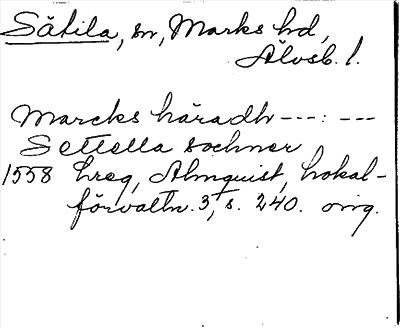 Sätila, sn, Marks hd,
Älvsb. l.
Marcks häradh ---: ---
Settella sochner
1558 hreg, Almquist, Lokal-
förvaltn. 3, s. 240. orig.